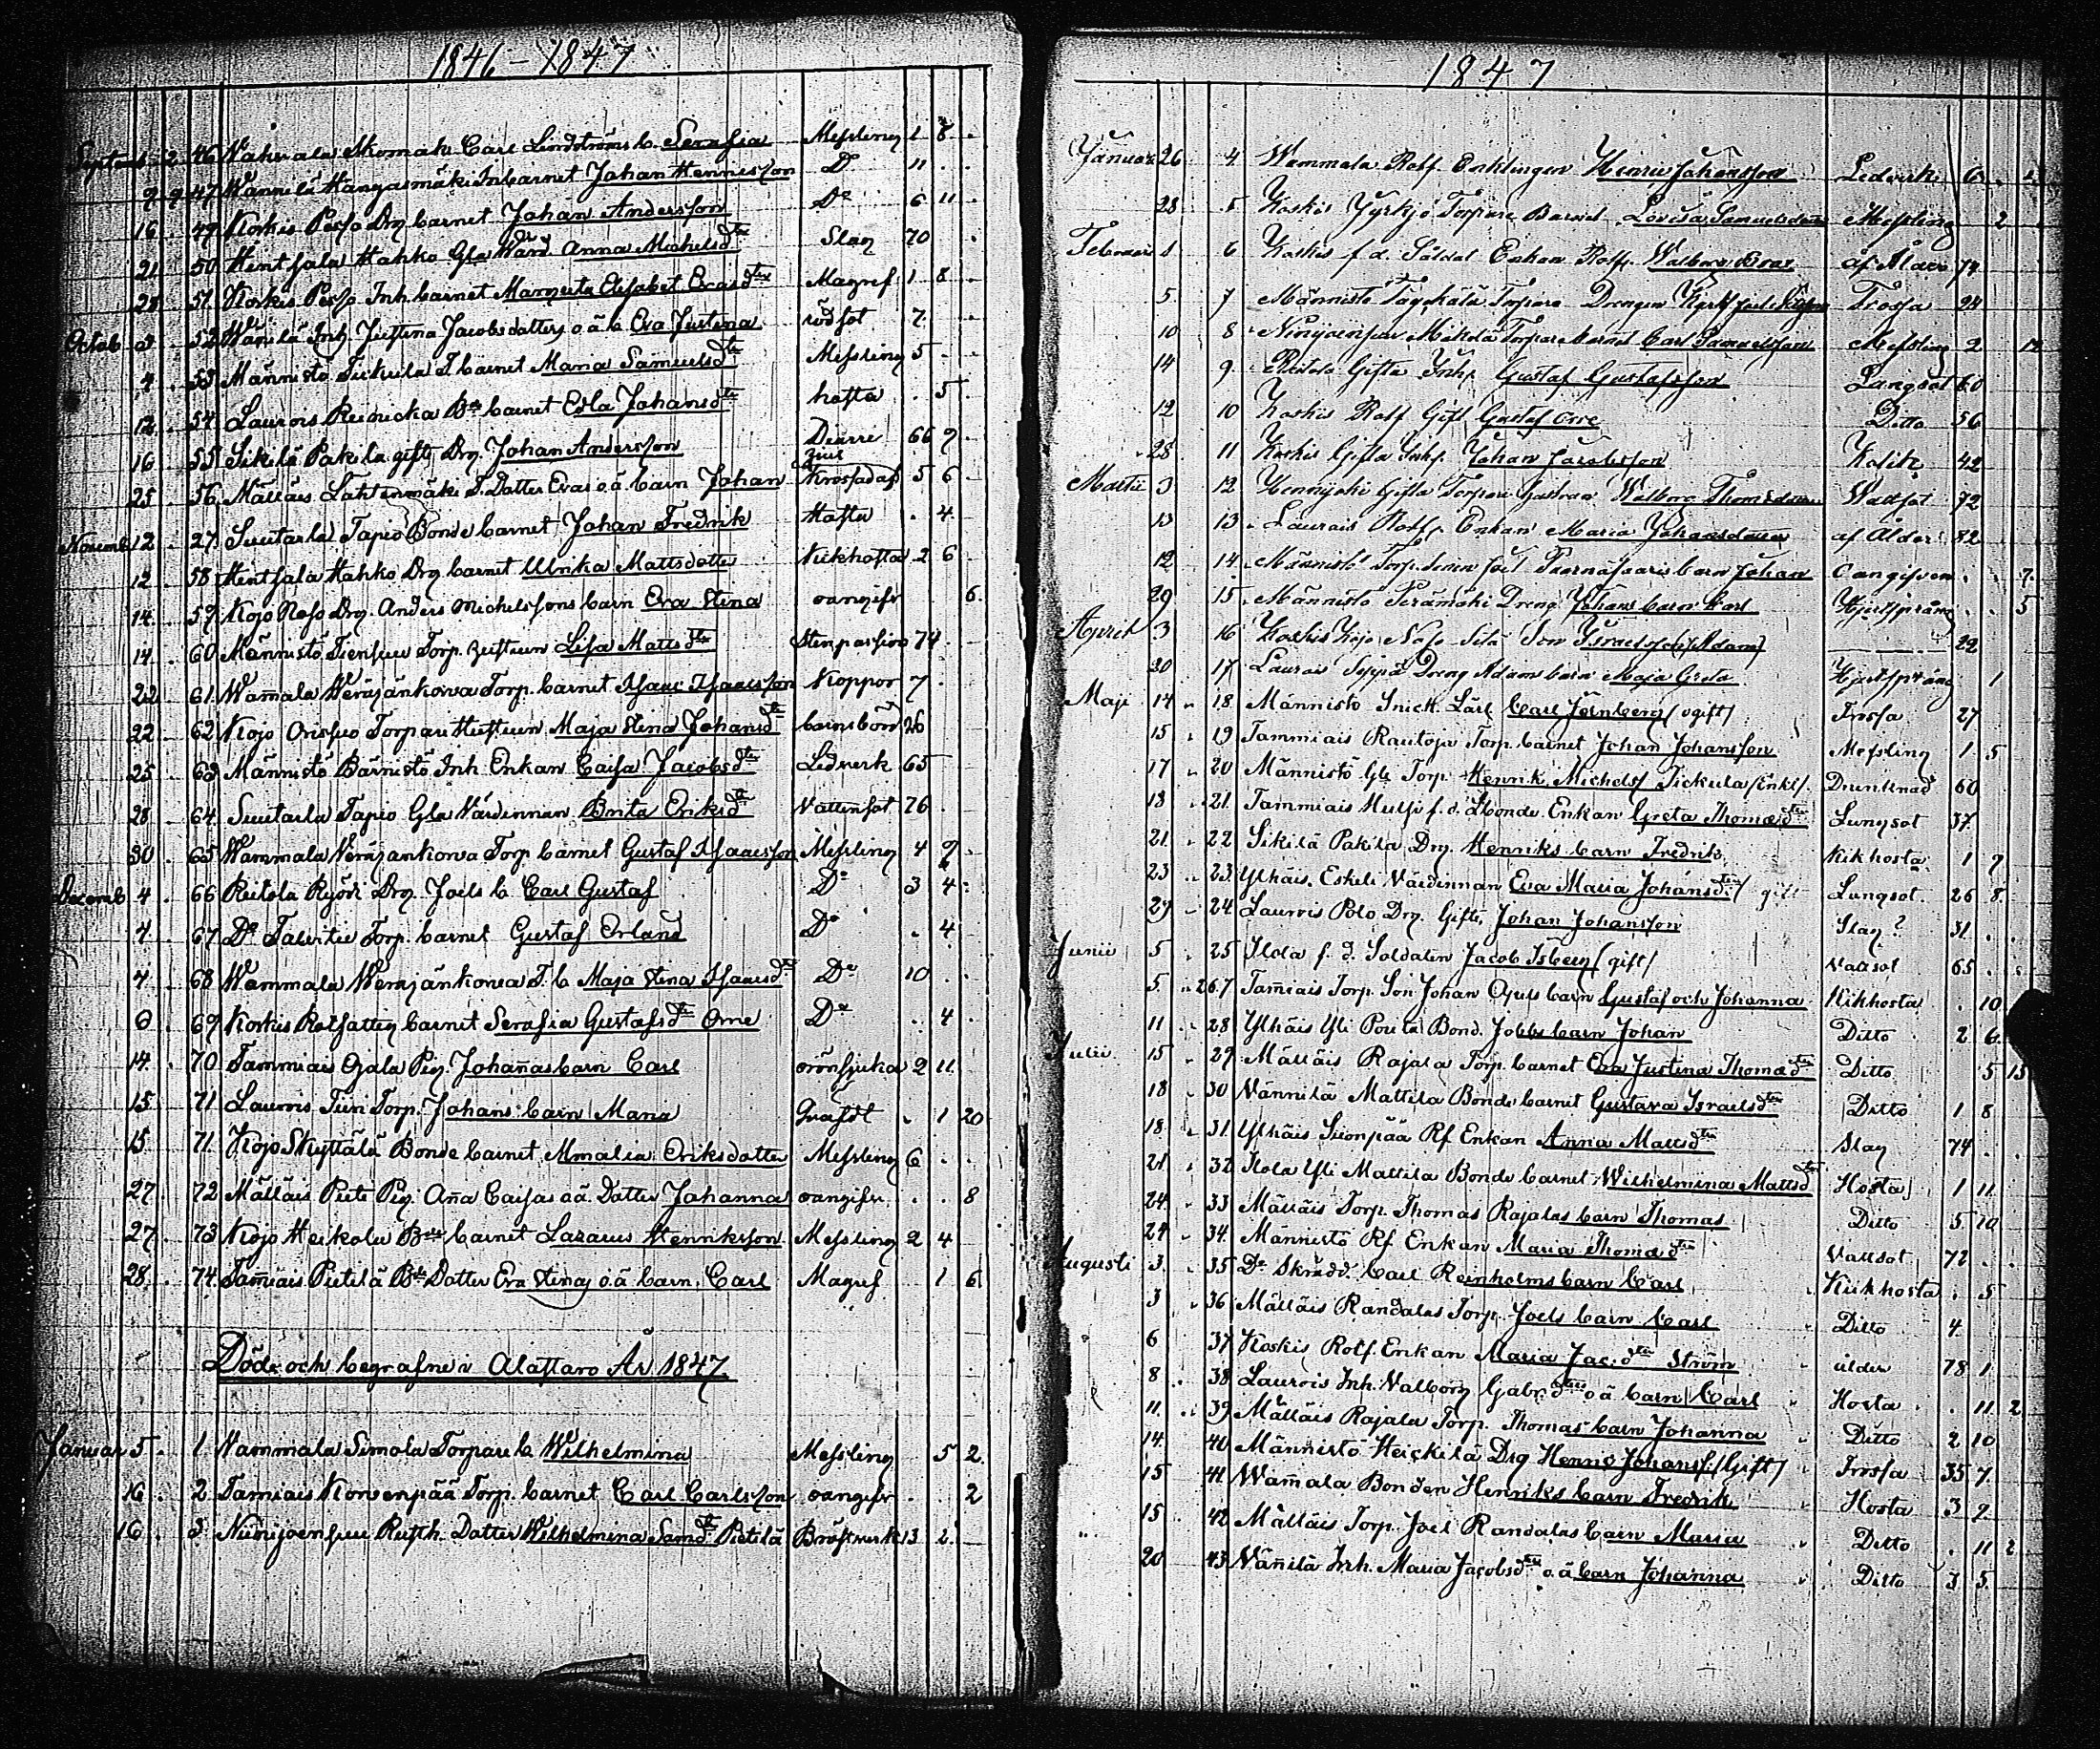 1846-1847
Septemb. 2. 46 Wahvala Skomak. Carl Lindströms b. Serafia Messling 1 8
9 47 Wännilä Hangasmäki Inh barnet Johan Hennisson Do 11
16 49 Koskis Peso Drg barnet Johan Andersson Do 6 11
21 50 Hentsala Hahko Gla Anna Michelsdtr Slag 70
28 51 Koskis Perso Inh barnet Margreta Elisabet dtr Magref 1 8
Octob 3 52 Wänilä Inh Justina Jacobsdotters o.ä. b Eva Justina rödsot 7
4 53 Männistö Tickula T. barnet Maria Samuelsdtr Messling 5
12 54 Laurois Reinicka Bde barnet Edla Johansdtr hosta 5
16 55 Sikilä Pakila gift Drg Johan Andersson 66 9
25 56 Mälläis Lahtenmäki T. Dotter Evas o.ä. barn Johan 5 6
Novemb 2 27 Suutarla Tapio Bonde barnet Johan Fredrik Hosta 4
12 58 Hentsala Hahko Drg barnet Ulrika Mattsdotter Kikhosta 2 6
14 59 Kojo Naso Drg. Anders Michelssons barn Eva Stina oangifv 6
14 60 Männistö Torp. hustrun Lisa Mattsdtr Stenpassion 74
22 61 Wam̄ala Weräjänkorva Torp. barnet Isaac Isaacsson Koppor 7
22 62 Kojo Orisuo Torpare Hustrun Maja Stina Johansdtr barnsbörd 26
25 63 Männistö Bärnistö Inh Enkan Caisa Jacobsdtr Ledverk 65
28 64 Suutarla Tapio Gla Värdinnan Brita Eriksdtr Vattensot 76
30 65 Wammala Veräjänkorva Torp barnet Gustaf Isaacsson Messling 4 9
Decemb 4 66 Reitola Ryöki Drg. Joels b Carl Gustaf Do 3 4
4 67 Do Talvitie Torp. barnet Gustaf Erland Do 4
4 68 Wammala Weräjänkorva T. b Maja Stina Isaacsdtr Do 10
6 69 Koskis Rotfattig barnet Serafia Gustafsdtr Orre Do 4
14 70 Tammiais Ojala Pig. Johan̄as barn Carl öronsjuka 2 11
15 71 Laurois Turi Torp. Johans barn Maria 1 20
15 71 Kojo Skyttälä Bonde barnet Amalia Eriksdotter Messling 6
27 72 Mälläis Peite Pig. An̄a Caisas oä Dotter Johanna oangifv 8
27 73 Kojo Heikola Bde barnet Lazarus Henriksson Messling 2 4
28 74 Tam̄iais Pietilä Bde Dotter Eva Stinas o.ä barn Carl Magref 1 6
Döde och begrafne i Alastaro År 1847
Januar 5 1 Wammala Simola Torpare b Wilhelmina Messling 5 2
16 2 Tam̄iais Korvenpää Torp. barnet Carl Carlsson oangifv 2
16 3 Niinijoensuu Rusth. Dotter Wilhelmina Samdtr Pietilä Bröstverk 13 2
1847
Januar 26 4 Wammala Rotf. Enklingen Henric Johansson Ledverk 6
28 5 Koskis Yyrkjö Torpare Barnet Lovisa Samuelsdotter Messling 2
Februarii 1 6 Koskis f.d. Soldat Enkan Rotf. Walborg af Ålder 74
5 7 Männistö Täyckälä Torpare Drengen Trossa 24
10 8 Ninijoensuu Mikola Torpare barnet Carl Samuelsson Messling 2 12
14 9 Reitola Gifta Inh. Gustaf Gustafsson Lungsot 60
12 10 Koskis Rotf Gift Gustaf Orre Ditto 56
28 11 Koskis Gifta Inh. Johan Jacobsson Kolik 42
Martii 3 12 Hennijoki Gifta Torpare hustrun Walborg Thomsdotter Wattsot 72
13 13 Laurois Rotf. Enkan Maria Johansdotter af Ålder 82
12 14 Männistö Torp. Joel barn Johan Oangifven 7
29 15 Männistö Perämäki Dreng Johans barn Carl Hjertsprång 5
April 3 16 Koskis Kojo Naso Son Israel 22
20 17 Laurois Seppä Dreng Adams barn Maja Greta Hjertsprång 1
Maji 14 18 Männistö Snick. Lärl Carl Jernberg (ogift) Trossa 27
15 19 Tammiais Rautoja Torp. barnet Johan Johansson Messling 1 5
17 20 Männistö Gla Torp. Henrik Michelss Tickula (Enkl) Drunknad 60
18 21 Tammiais Mulsi f.d. Lbonde Enkan Greta Thomasdtr Lungsot 37
21 22 Sikilä Pakila Drg. Henriks barn Fredrik Kikhosta 1 7
23 23 Ylhäis Eskeli Värdinnan Eva Maria Johansdtr / gift Lungsot 26 8
29 24 Laurois Polo Drg. Gift Johan Johansson Slag? 31
Junii 5 25 Ilola f.d. Soldaten Jacob Isberg (gift) Vattsot 65
5 26.7 Tam̄iais Torp. Son Johan Ojas barn Gustaf och Johanna Kikhosta 10
11 28 Ylhäis Yli Porila Bond. Jobs barn Johan Ditto 2 6
Julii 15 29 Mälläis Rajala Torp. barnet Eva Justina Thomadtr Ditto 5 15
18 30 Vännilä Mattila Bonde barnet Gustava Israelsdtr Ditto 1 8
18 31 Ylhäis Suonpää Rf Enkan Anna Mattsdtr Slag 74
21 32 Ilola Yli Mattila Bonde barnet Wilhelmina Mattsdtr Hosta 1 11
24 33 Mälläis Torp. Thomas Rajalas barn Thomas Ditto 5 10
24 34 Männistö Rf Enkan Maria Thomadtr Vattsot 72
Augusti 3 35 Do Skrädd. Carl Reinholms barn Carl Kikhosta 5
3 36 Mälläis Randalas Torp. Joels barn Carl Ditto 4
6 37 Koskis Rotf. Enkan Maria Jac.dtr Ström ålder 78 1
8 38 Laurois Inh. Valborg Gabr.dtrs o ä barn Carl Hosta 11 2
11 39 Mälläis Rajala Torp. Thomas barn Johanna Ditto 2 10
14 40 Männistö Heickilä Drg Henric Johanss (Gift) Trossa 35 7
15 41 Wam̄ala Bonden Henriks barn Fredrik Hosta 3 2
15 42 Mälläis Torp. Joel Randalas barn Maria Ditto 11 2
20 43 Vän̄ilä Inh. Maria Jacobsdtrs o.ä barn Johanna Ditto 3 5